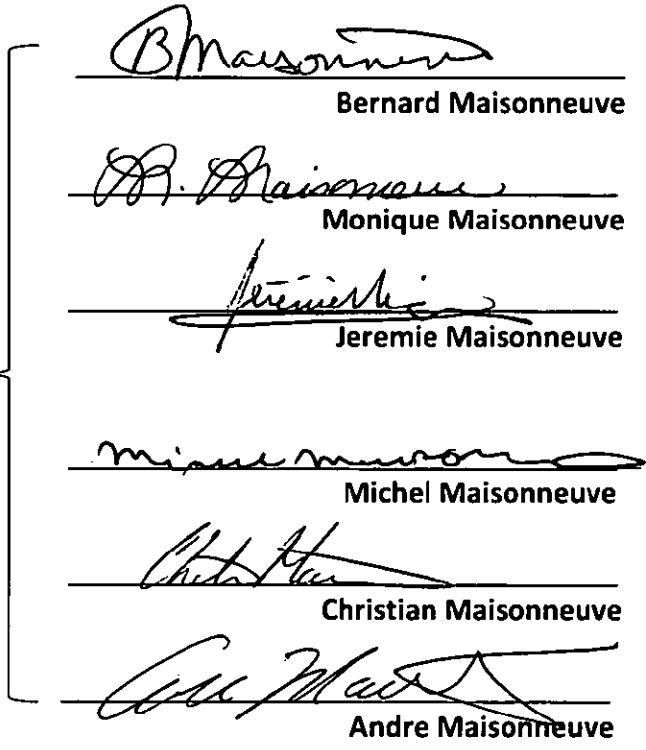 B Maisonneuve
Bernard Maisonneuve
M. Maisonneuve
Monique Maisonneuve
Jeremie
Jeremie Maisonneuve
Michel Maisonneuve
Christian Maisonneuve
Andre Maisonneuve